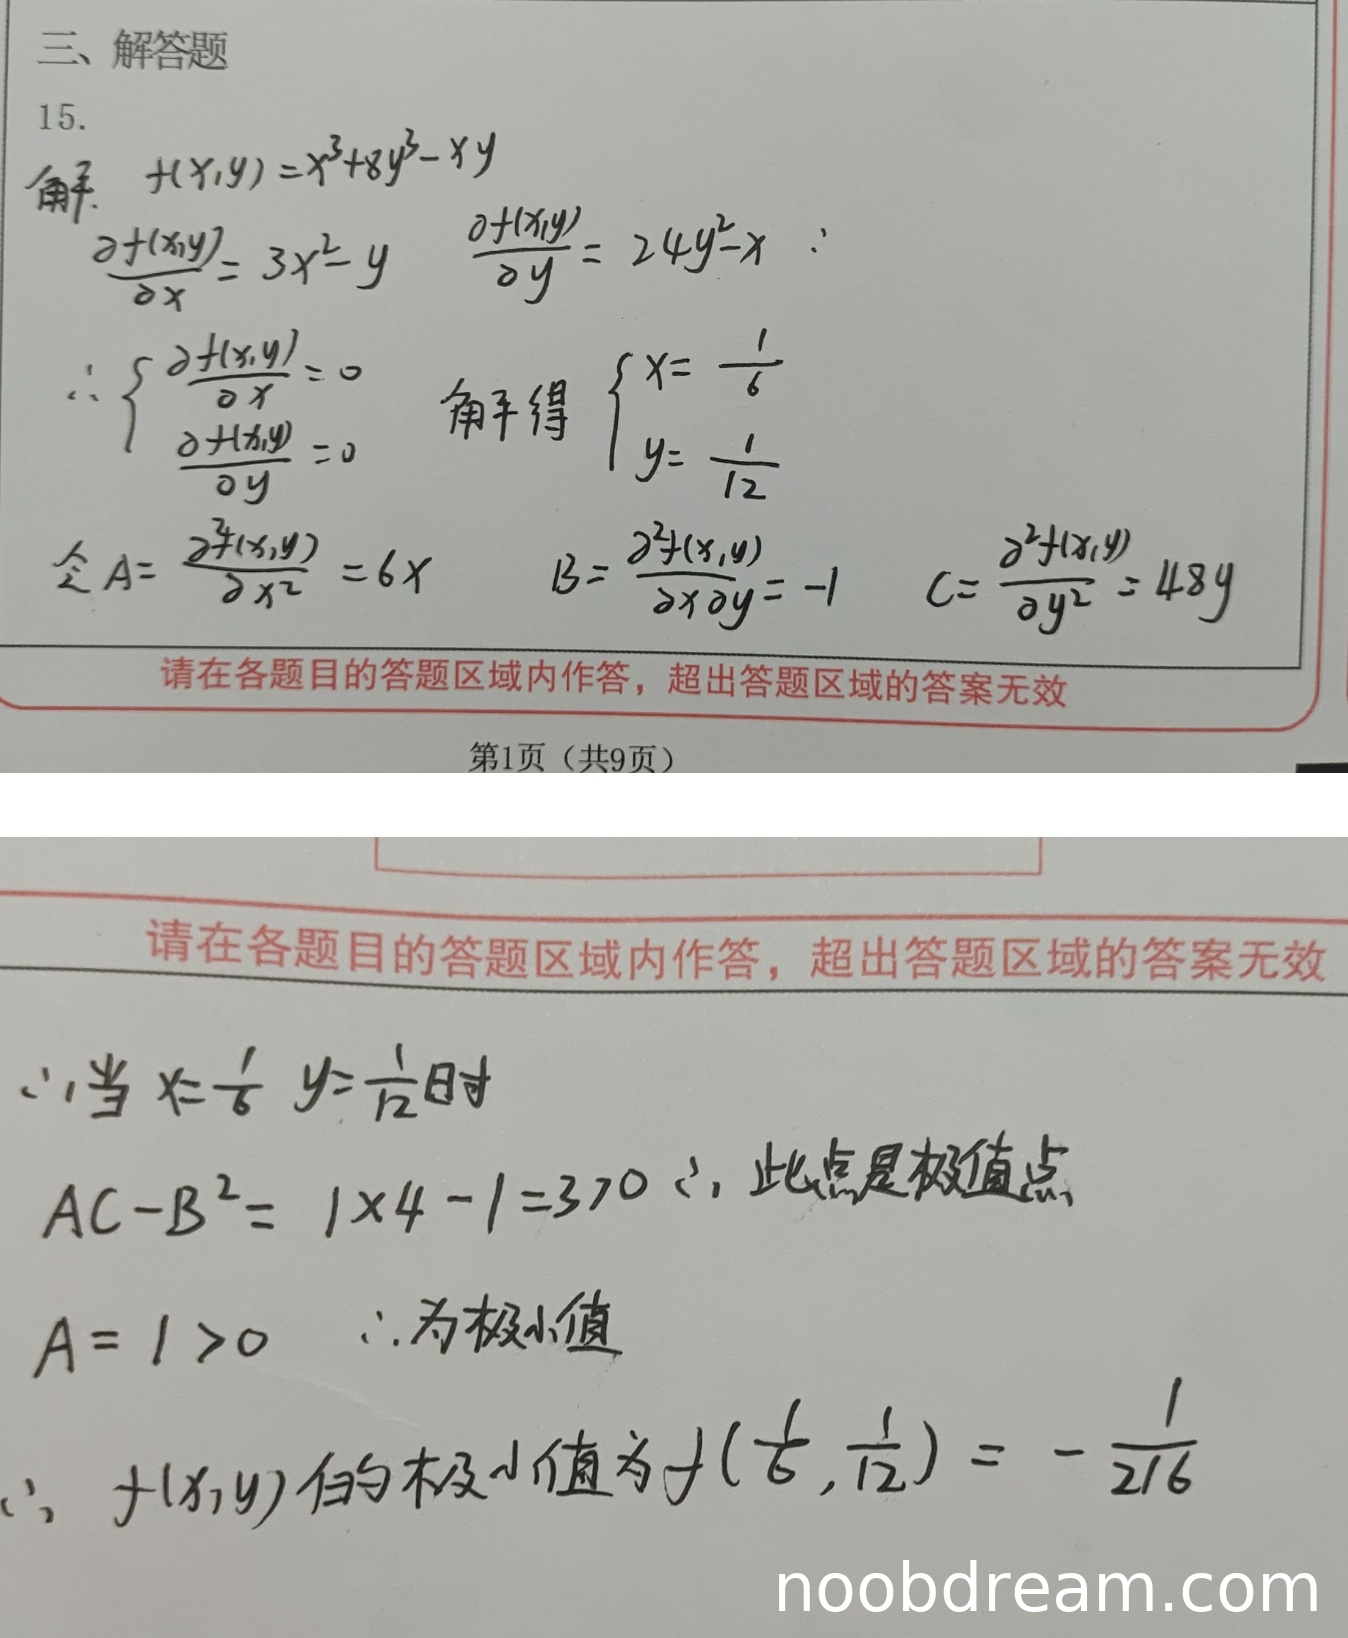 三、解答题
15.
解. f(x,y)=x³+8y³-xy
∂f(x,y)/∂x = 3x²-y ∂f(x,y)/∂y = 24y²-x ∵
∴ { ∂f(x,y)/∂x = 0 ∂f(x,y)/∂y = 0 解得 { x= 1/6 y= 1/12
令A= ∂²f(x,y)/∂x² =6x B= ∂²f(x,y)/∂x∂y = -1 C= ∂²f(x,y)/∂y² = 48y
请在各题目的答题区域内作答，超出答题区域的答案无效
第1页（共9页）
请在各题目的答题区域内作答，超出答题区域的答案无效
∴当 x=1/6 y=1/12时
AC-B²= 1×4-1=3>0 ∴此点是极值点
A=1>0 ∴为极小值
∴ f(x,y)的极小值为f(1/6,1/12) = -1/216
noobdream.com